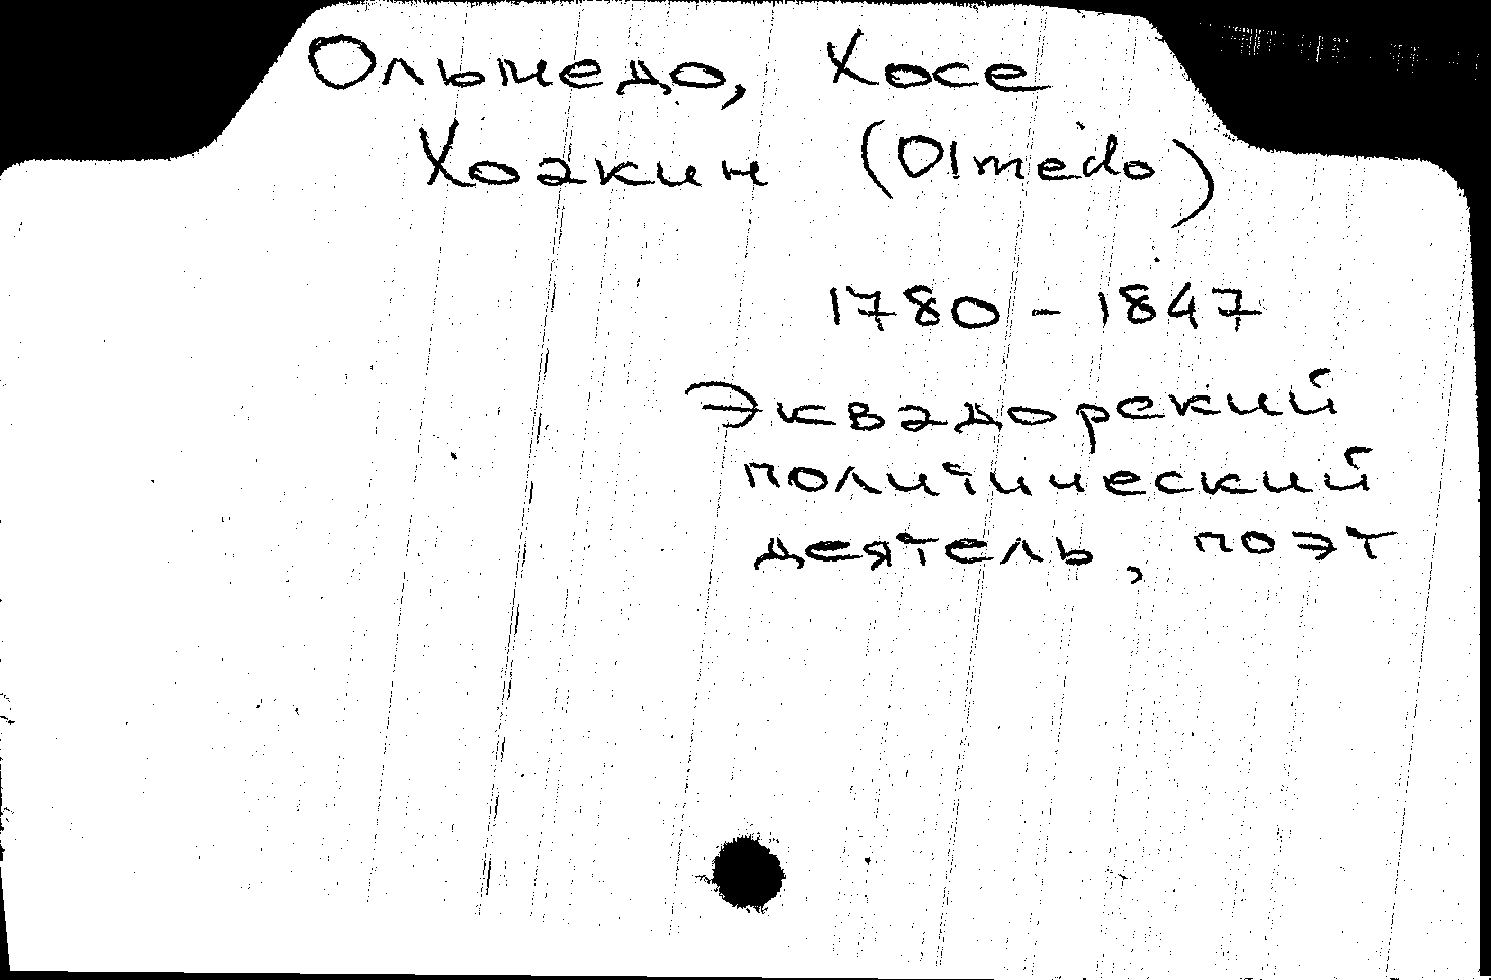 Ольмедо, Хосе
Хоакин (Olmedo)
1780 - 1847
Эквадорский
политический
деятель, поэт